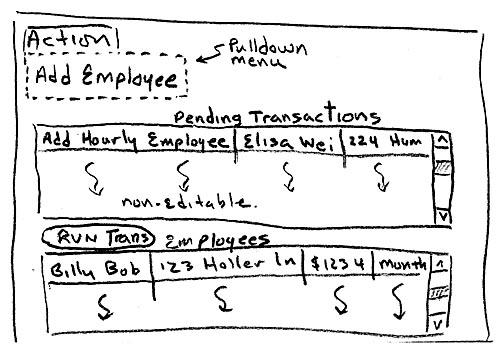 Action
Add Employee
Pulldown
menu
Pending Transactions
Add Hourly Employee Elisa Wei 224 Hum
non-editable.
Run Trans Employees
Billy Bob 123 Holler Ln $1234 month